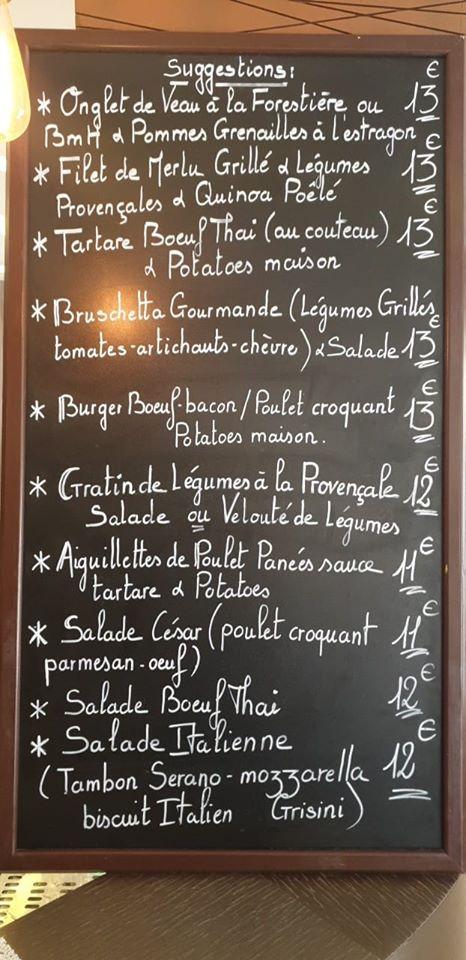 Suggestions:
* Onglet de Veau à la Forestière ou 13 €
BmH & Pommes Grenailles à l'estragon
* Filet de Merlu Grillé & Légumes 13 €
Provençales & Quinoa Poêlé
* Tartare Boeuf Thai (au couteau) 13 €
& Potatoes maison
* Bruschetta Gourmande (Légumes Grillés
tomates-artichauts-chèvre) & Salade 13 €
* Burger Boeuf-bacon / Poulet croquant 13 €
Potatoes maison.
* Gratin de Légumes à la Provençale 12 €
Salade ou Velouté de Légumes
* Aiguillettes de Poulet Panées sauce 11 €
tartare & Potatoes
* Salade César (poulet croquant 11 €
parmesan-oeuf)
* Salade Boeuf Thai 12 €
* Salade Italienne 12 €
(Jambon Serano - mozzarella
biscuit Italien Grisini)